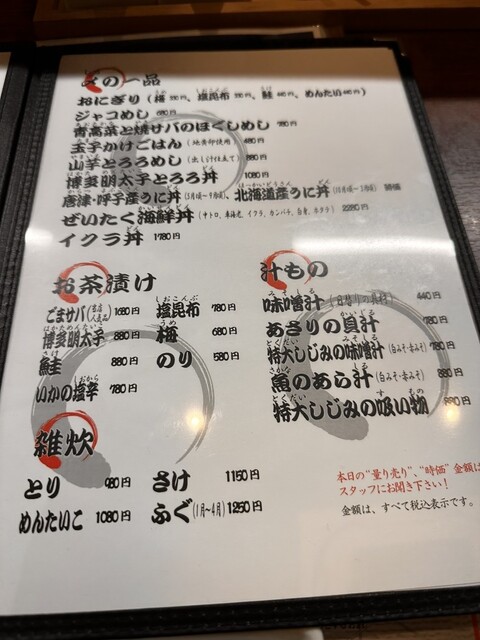 〆の一品
おにぎり(梅 塩昆布 鮭 めんたい)
ジャコめし 680円
青高菜と焼サバのほぐしめし 780円
玉子かけごはん(地黄卵使用) 480円
山芋とろろめし(出し汁仕立て) 880円
博多明太子とろろ丼 1080円
唐津・呼子産うに丼 北海道産うに丼 時価
ぜいたく海鮮丼(中トロ、車海老、イクラ、カンパチ、白身、ホタテ) 2280円
イクラ丼 1780円
お茶漬け
ごまサバ(当店人気品) 1680円
博多明太子 880円
鮭 880円
いかの塩辛 780円
塩昆布 780円
梅 680円
のり 580円
汁もの
味噌汁(日替りの具材) 440円
あさりの貝汁 780円
特大しじみの味噌汁(白みそ・赤みそ) 780円
魚のあら汁(白みそ・赤みそ) 880円
特大しじみの吸い物 880円
雑炊
とり 980円
めんたいこ 1080円
さけ 1150円
ふぐ(1月〜4月) 1250円
本日の"量り売り"、"時価"金額は
スタッフにお聞き下さい!
金額は、すべて税込表示です。